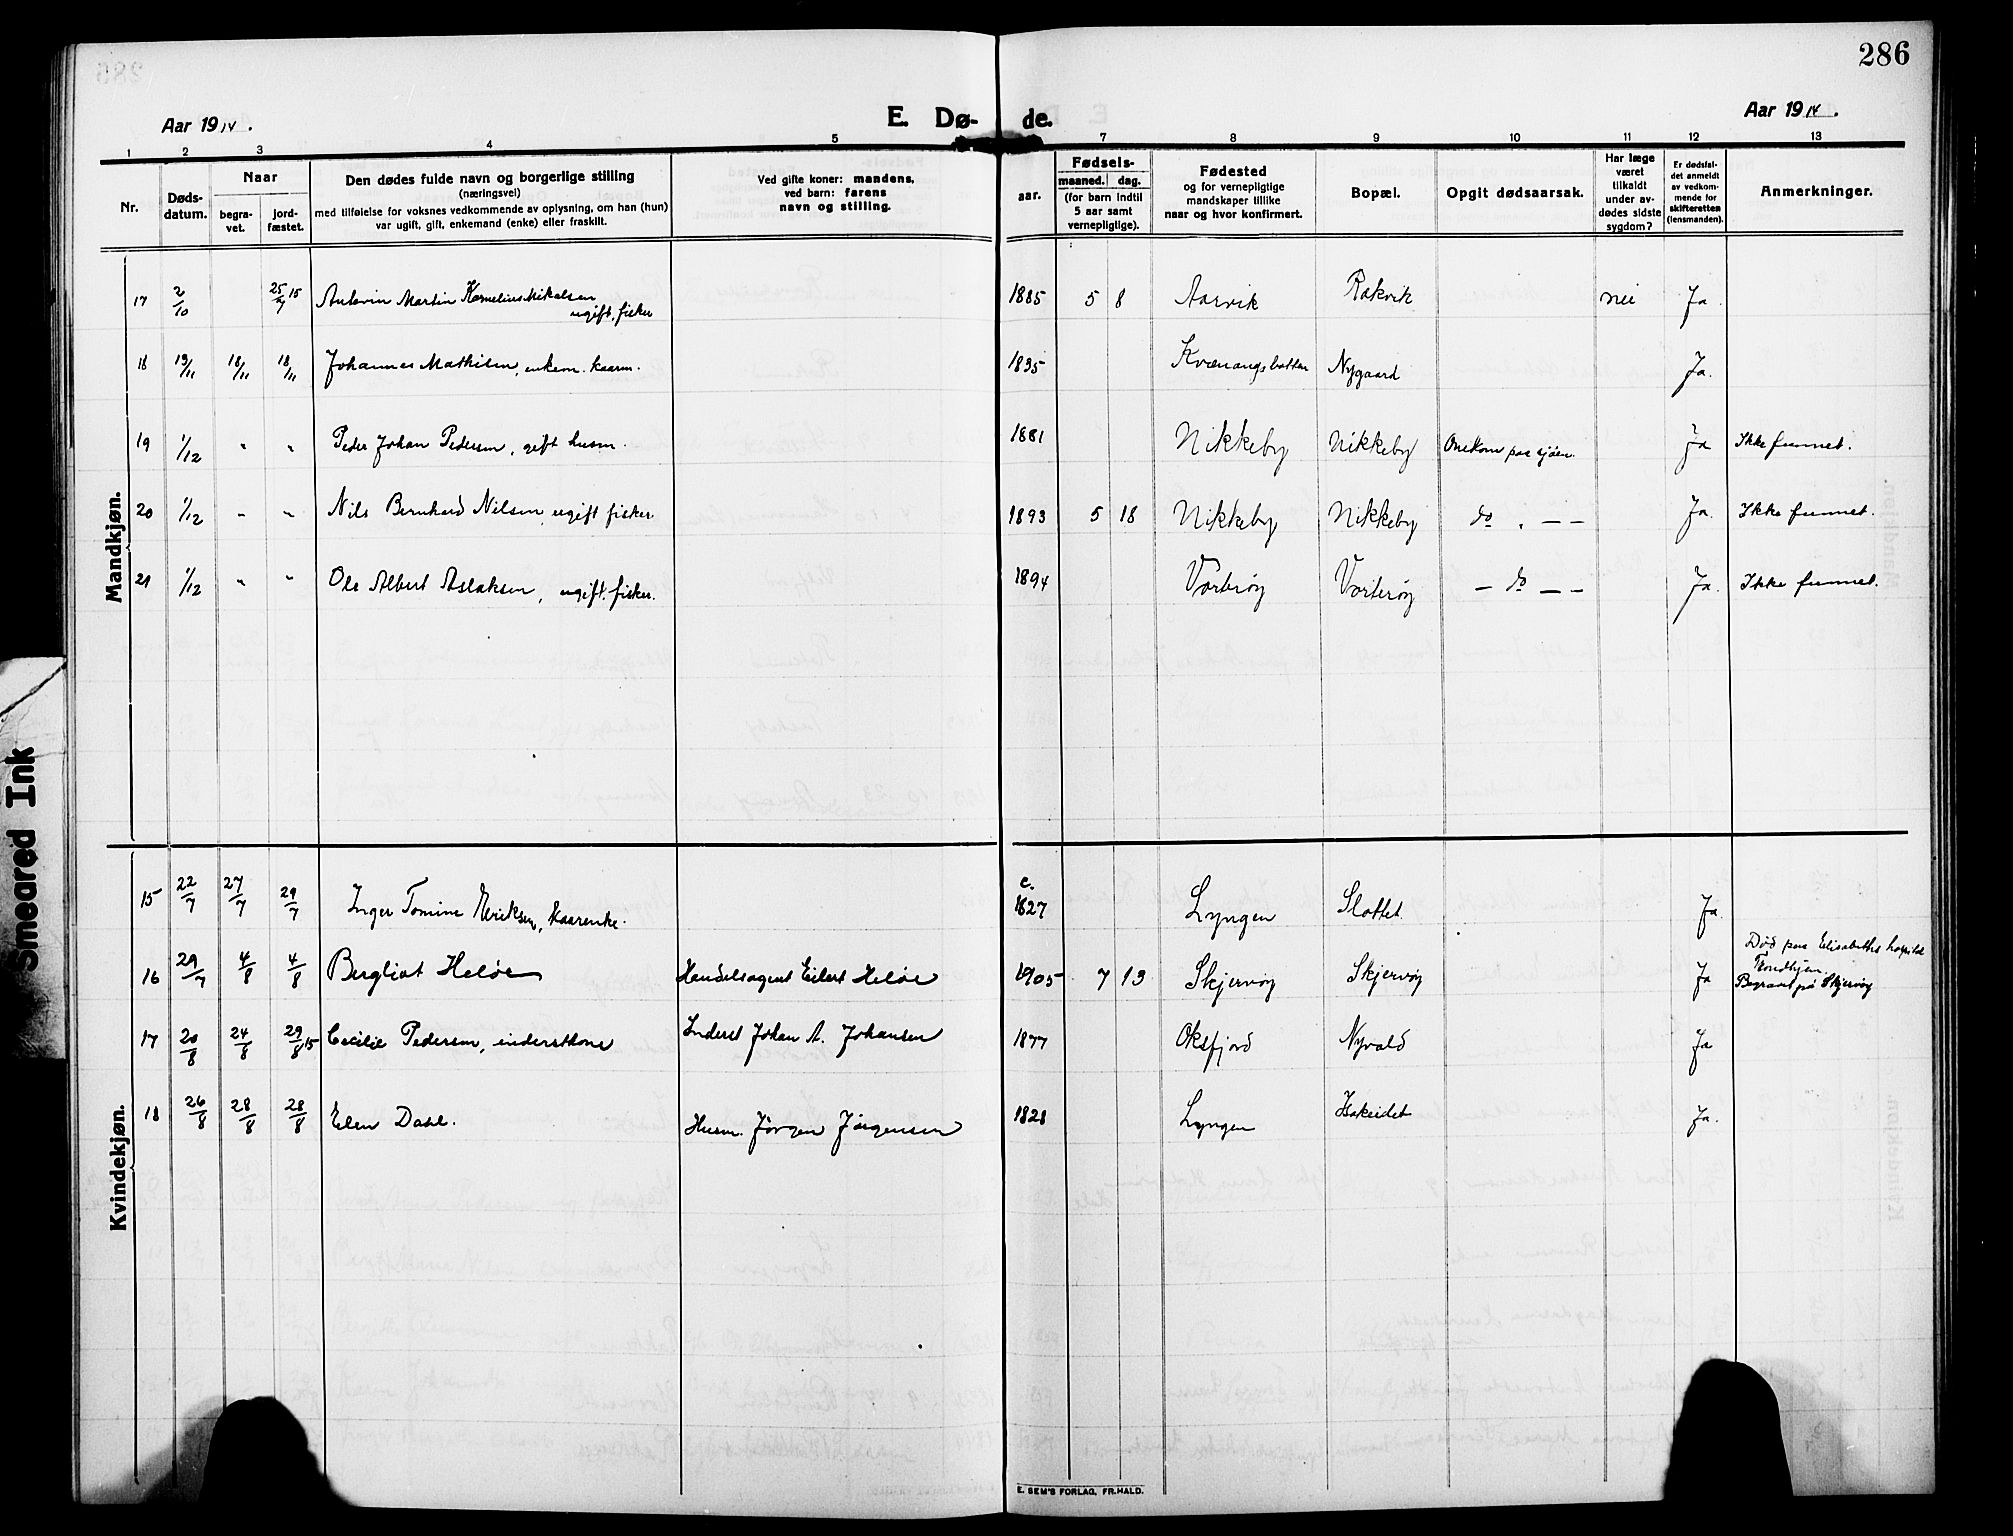 286
Aar 1914.
E. Dø-
de.
Aar 1914.
1 2 3 4 5 7 8 9 10 11 12 13
Nr.
Døds-
datum.
Naar
begra-
vet.
jord-
fæstet.
Den dødes fulde navn og borgerlige stilling
(næringsvei)
med tilføielse for voksnes vedkommende av oplysning, om han (hun)
var ugift, gift, enkemand (enke) eller fraskilt.
Ved gifte koner: mandens,
ved barn: farens
navn og stilling.
aar.
Fødsels-
maaned. dag.
(for barn indtil
5 aar samt
vernepligtige).
Fødested
og for vernepligtige
mandskaper tillike
naar og hvor konfirmert.
Bopæl.
Opgit dødsaarsak.
Har læge
været
tilkaldt
under av-
dødes sidste
sygdom?
Er dødsfal-
det anmeldt
av vedkom-
mende for
skifteretten
(lensmanden).
Anmerkninger.
Mandkjøn.
17 2/10 25/7 15 Martin Kornelius Mikalsen 1885 5 8 Aarvik Rakvik nei Ja
ugift, fisker
18 13/11 18/11 18/11 Johannes Mathisen, enkem. kaarm. 1835 Kvænangsbotten Nygaard Ja.
19 1/12 " " Peder Johan Pedersen, gift husm. 1881 Nikkeby Nikkeby Omkom paa sjøen. Ja Ikke funnet.
20 1/12 " " Nils Bernhard Nilsen, ugift fisker. 1893 5 18 Nikkeby Nikkeby do . — — Ja. Ikke funnet.
21 1/12 " " Ole Albert Aslaksen, ugift. fisker. 1894 Vorterøy Vorterøy — do — — Ja. Ikke funnet.
Kvindekjøn.
15 22/7 27/7 29/7 Inger Tomine Eriksen, kaarenke. c. 1827 Lyngen Slottet. Ja.
16 29/7 4/8 4/8 Bergliot Heløe Handelsagent Eilert Heløe 1905 7 13 Skjervøy Skjervøy Ja Død paa Elisabeths hospital
Trondhjem
Begravet på Skjervøy
17 20/8 24/8 29/8 15 Cecilie Pedersen, inderstkone Inderst Johan A. Johansen 1877 Oksfjord Nyvold Ja
18 26/8 28/8 28/8 Elen Dahl. Husm. Jørgen Jørgensen 1828 Lyngen Isakeidet Ja.
E. SEM'S FORLAG, FR.HALD.
Smeared Ink